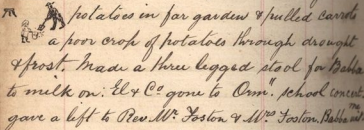 potatoes in far garden & pulled carrots
a poor crop of potatoes through drought
& frost. Made a three legged stool for Babba
to milk on. El & Co gone to Orm". school concert,
gave a left to Rev. Mr. Foston & Mrs Foston. Babba